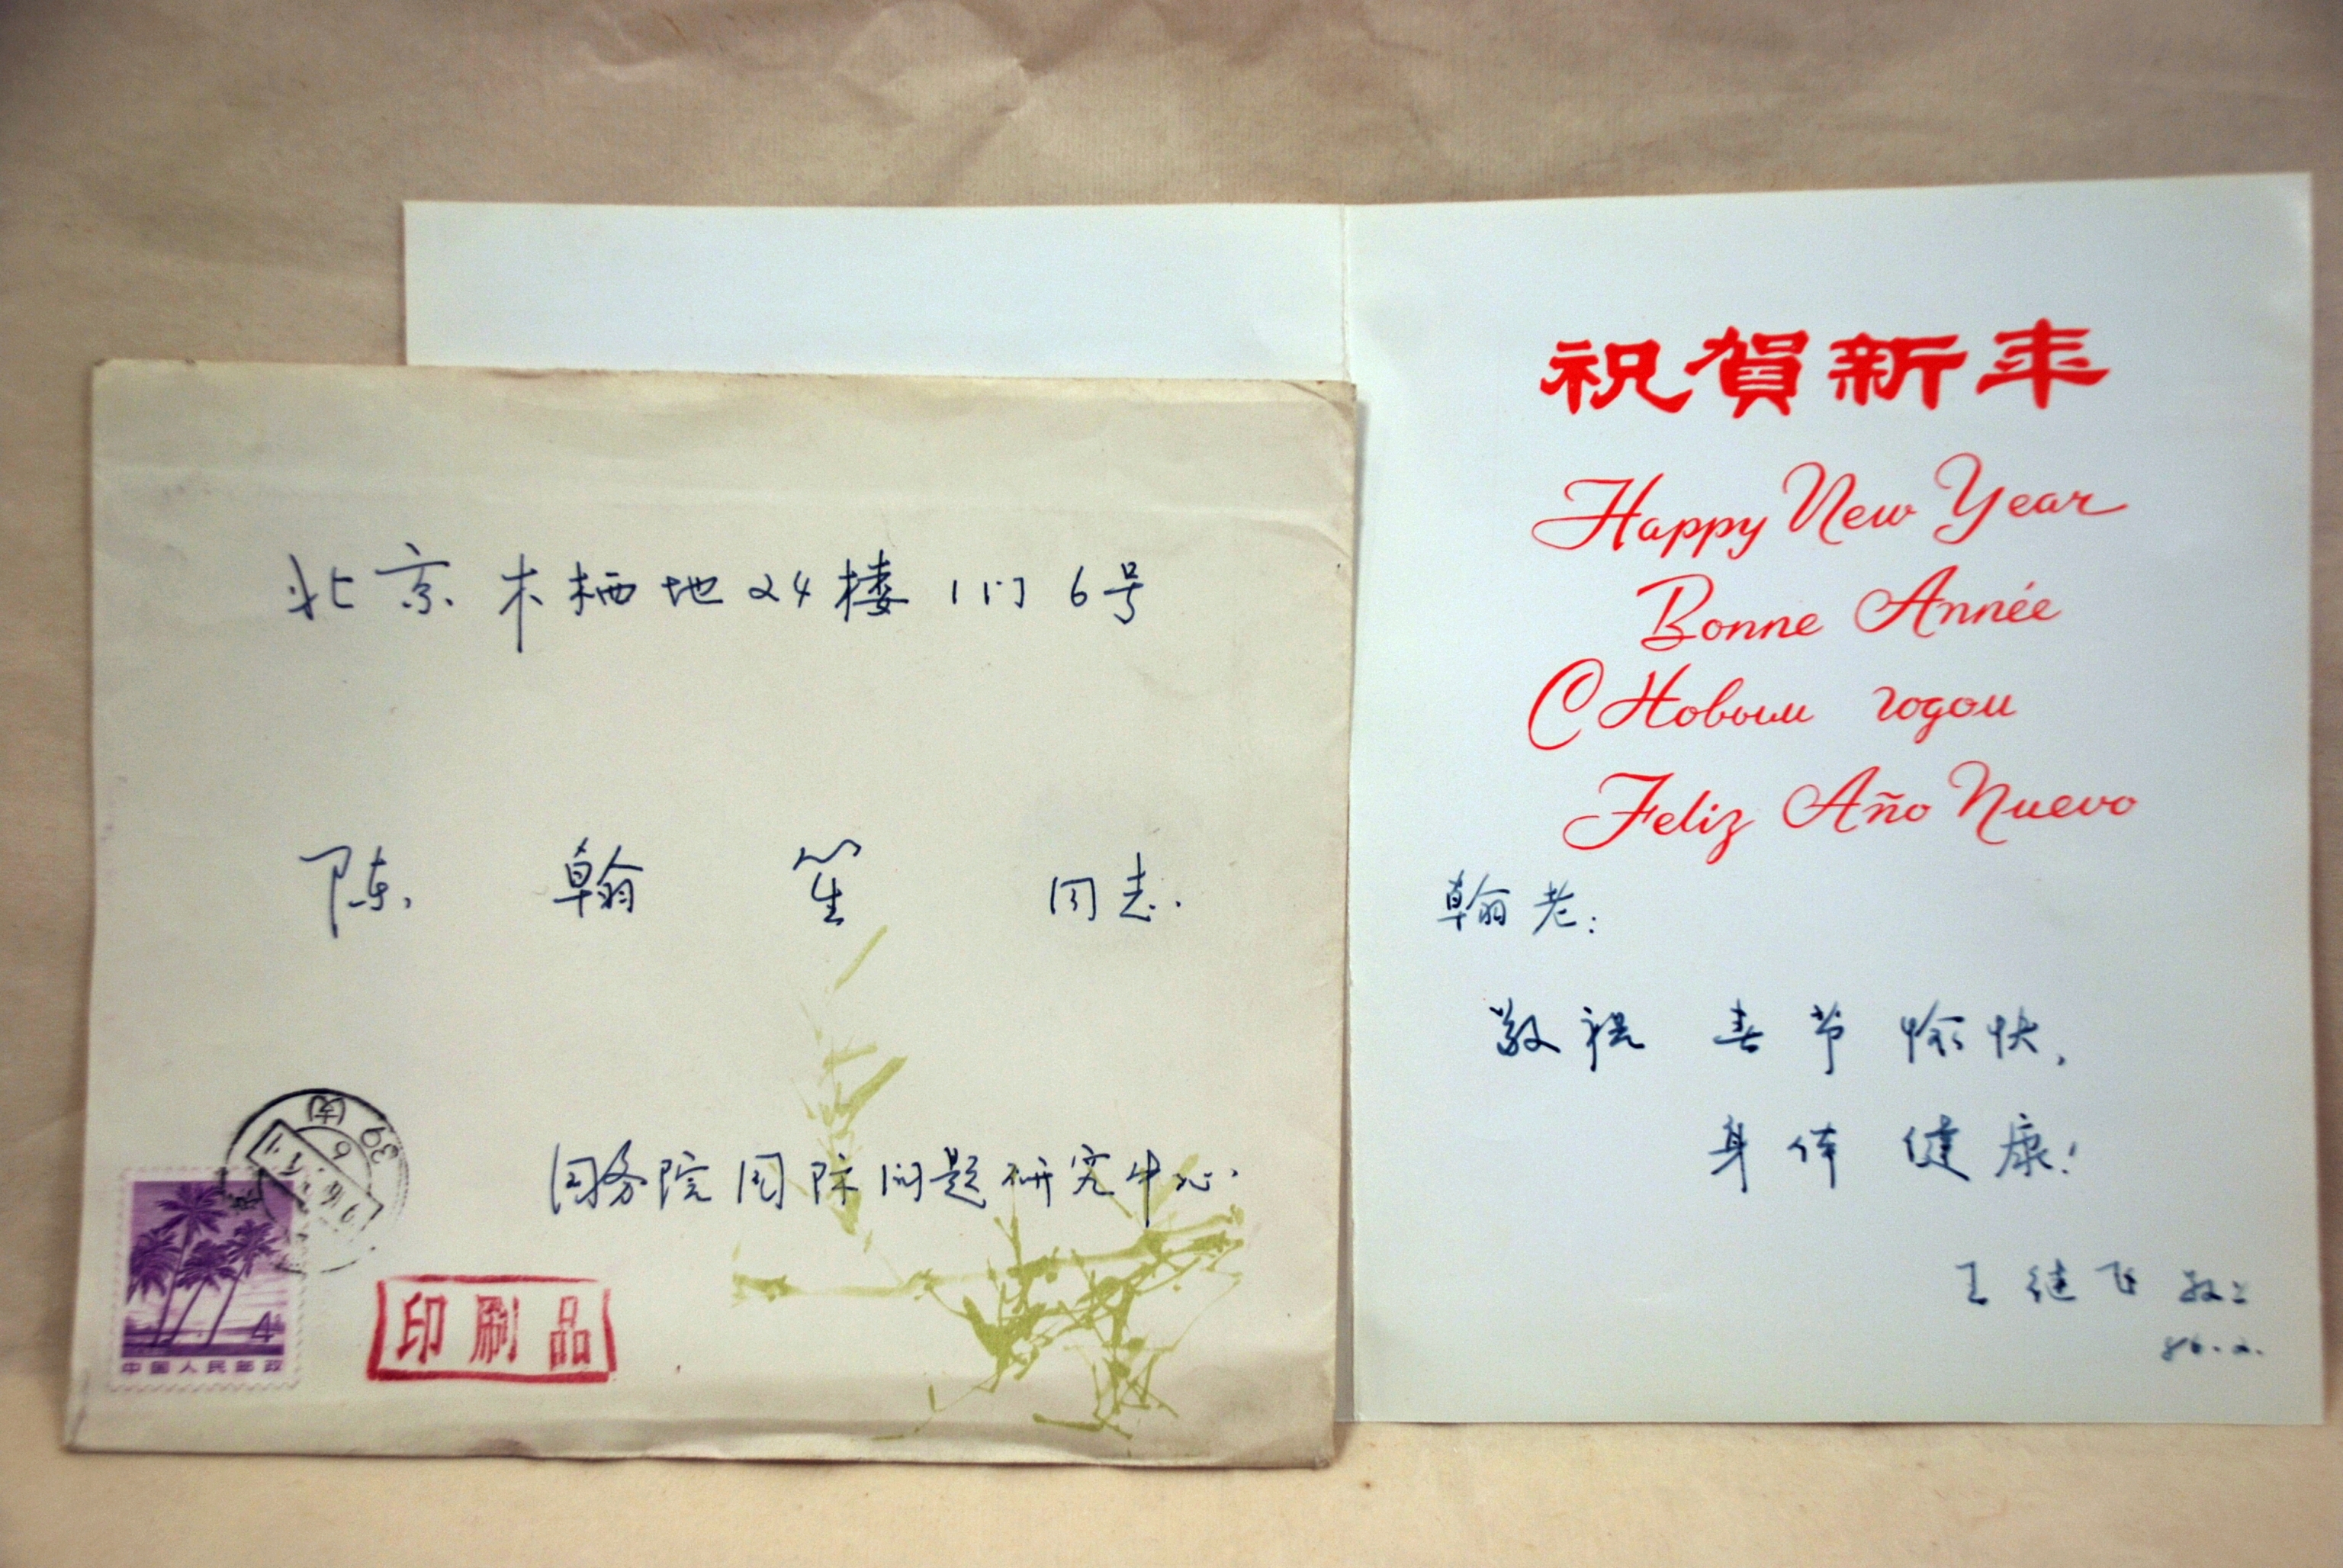 北京木栖地24楼1门6号
陈翰笙同志.
国务院国际问题研究中心.
4
中国人民邮政
印刷品
祝賀新年
Happy New Year
Bonne Année
С Новым годом
Feliz Año Nuevo
翰老:
敬祝 春节愉快,
身体健康!
王继飞 敬上
86.2.